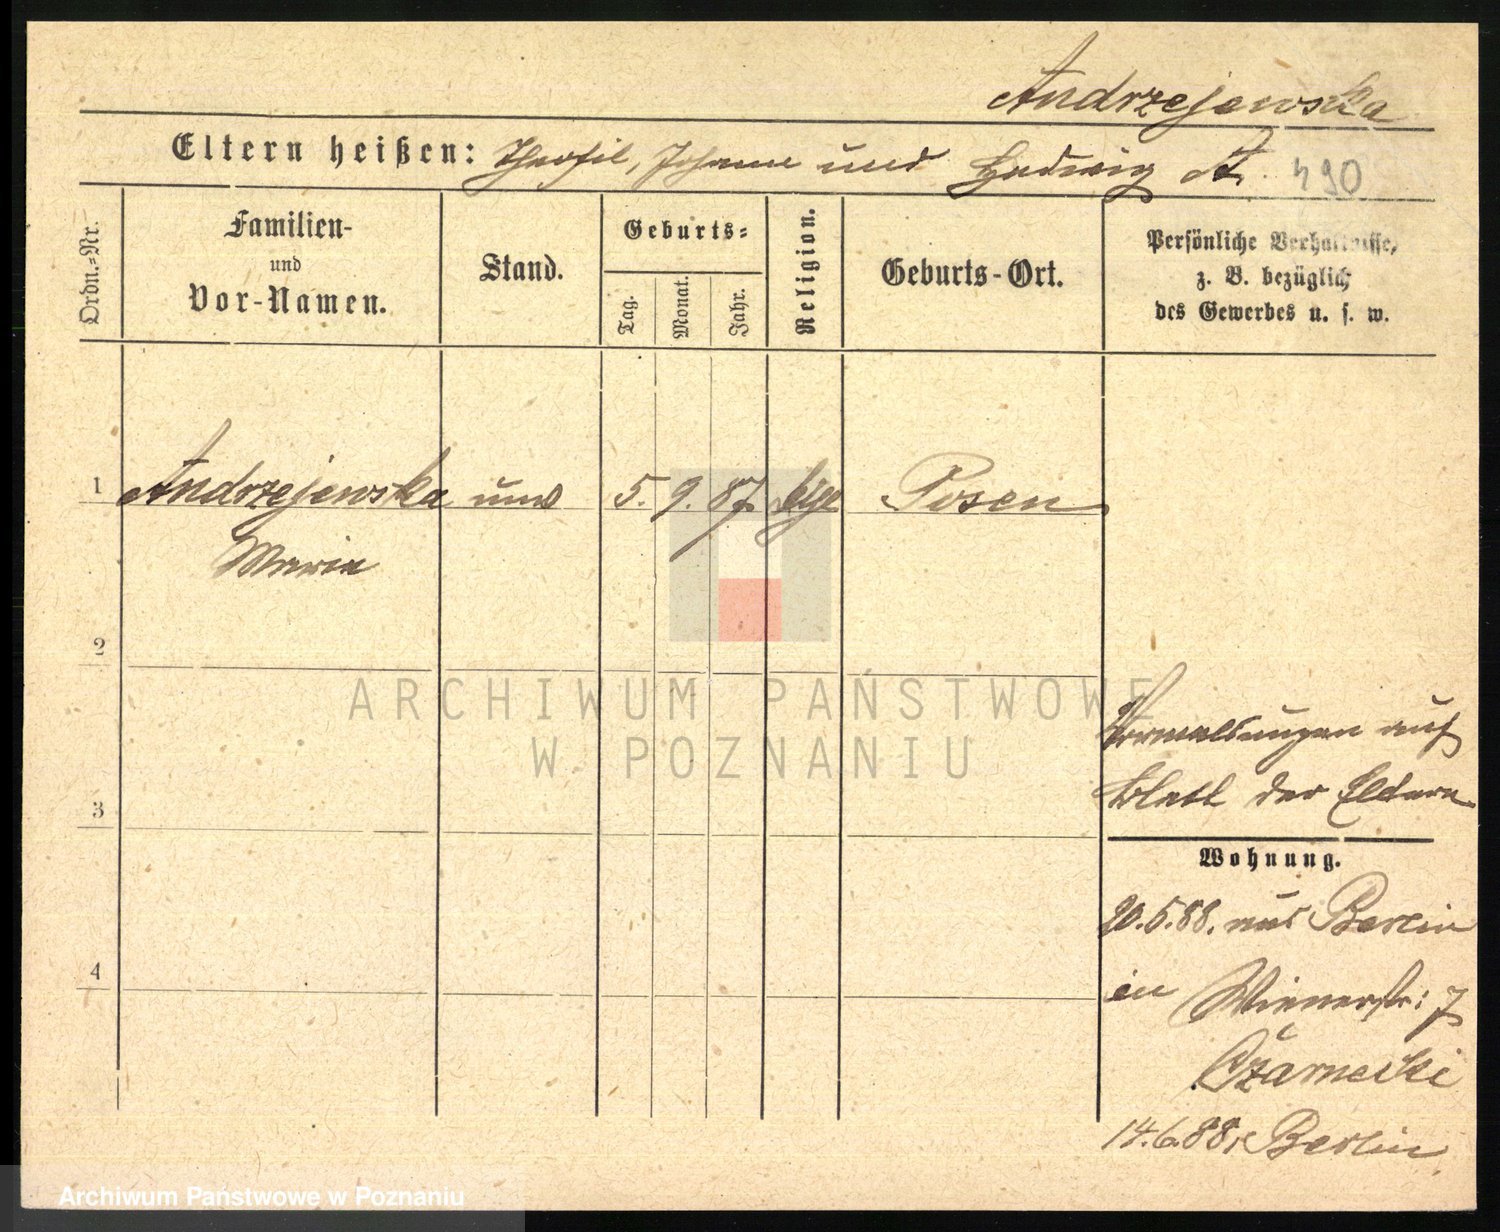 Andrzejewska
Eltern heißen: Theofil, Johann und Hedwig A. 490
Ordn.=Nr.
Familien-
und
Vor-Namen.
Stand.
Geburts=
Tag.
Monat.
Jahr.
Religion.
Geburts-Ort.
Persönliche Verhältnisse,
z. B. bezüglich
des Gewerbes u. s. w.
1 Andrzejewska 5. 9. 87 Posen
Maria
2
ARCHIWUM PAŃSTWOWE
W POZNANIU
auf
3 Blatt der Eltern
Wohnung.
20.5.88. aus Berlin
4
in Wienerstr: 7
Czarnecki
14.6.88, Berlin
Archiwum Państwowe w Poznaniu